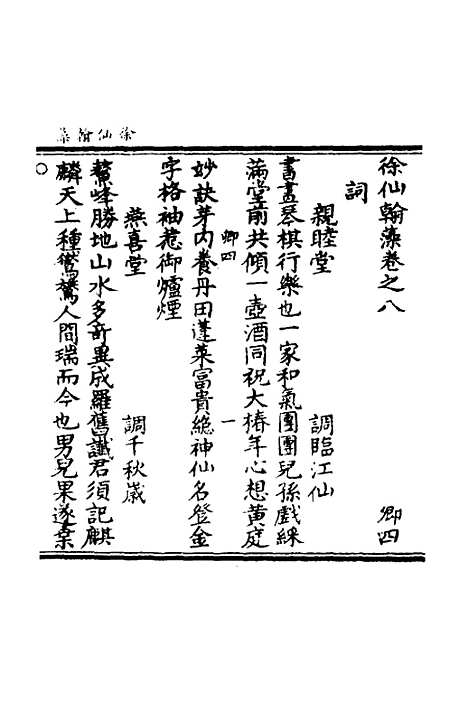 徐仙翰藻
徐仙翰藻卷之八 卿四
詞
親睦堂 調臨江仙
書畫琴棋行樂也一家和氣團團兒孫戲綵
滿堂前共傾一壺酒同祝大椿年心想黄庭
卿四 一
妙訣芽內養丹田蓬萊富貴總神仙名登金
字格袖惹御爐煙
燕喜堂 調千秋歲
鰲峰勝地山水多奇異成羅舊讖君須記麒
麟天上種鴛鴦人間瑞而今也男兒果遂棄